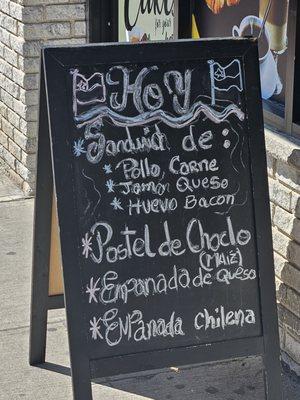 Cakes
for
Hoy
Sandwich de:
Pollo Carne
Jamon Queso
Huevo Bacon
Pastel de Choclo
(MAIZ)
Empanada de Queso
EMPanada Chilena